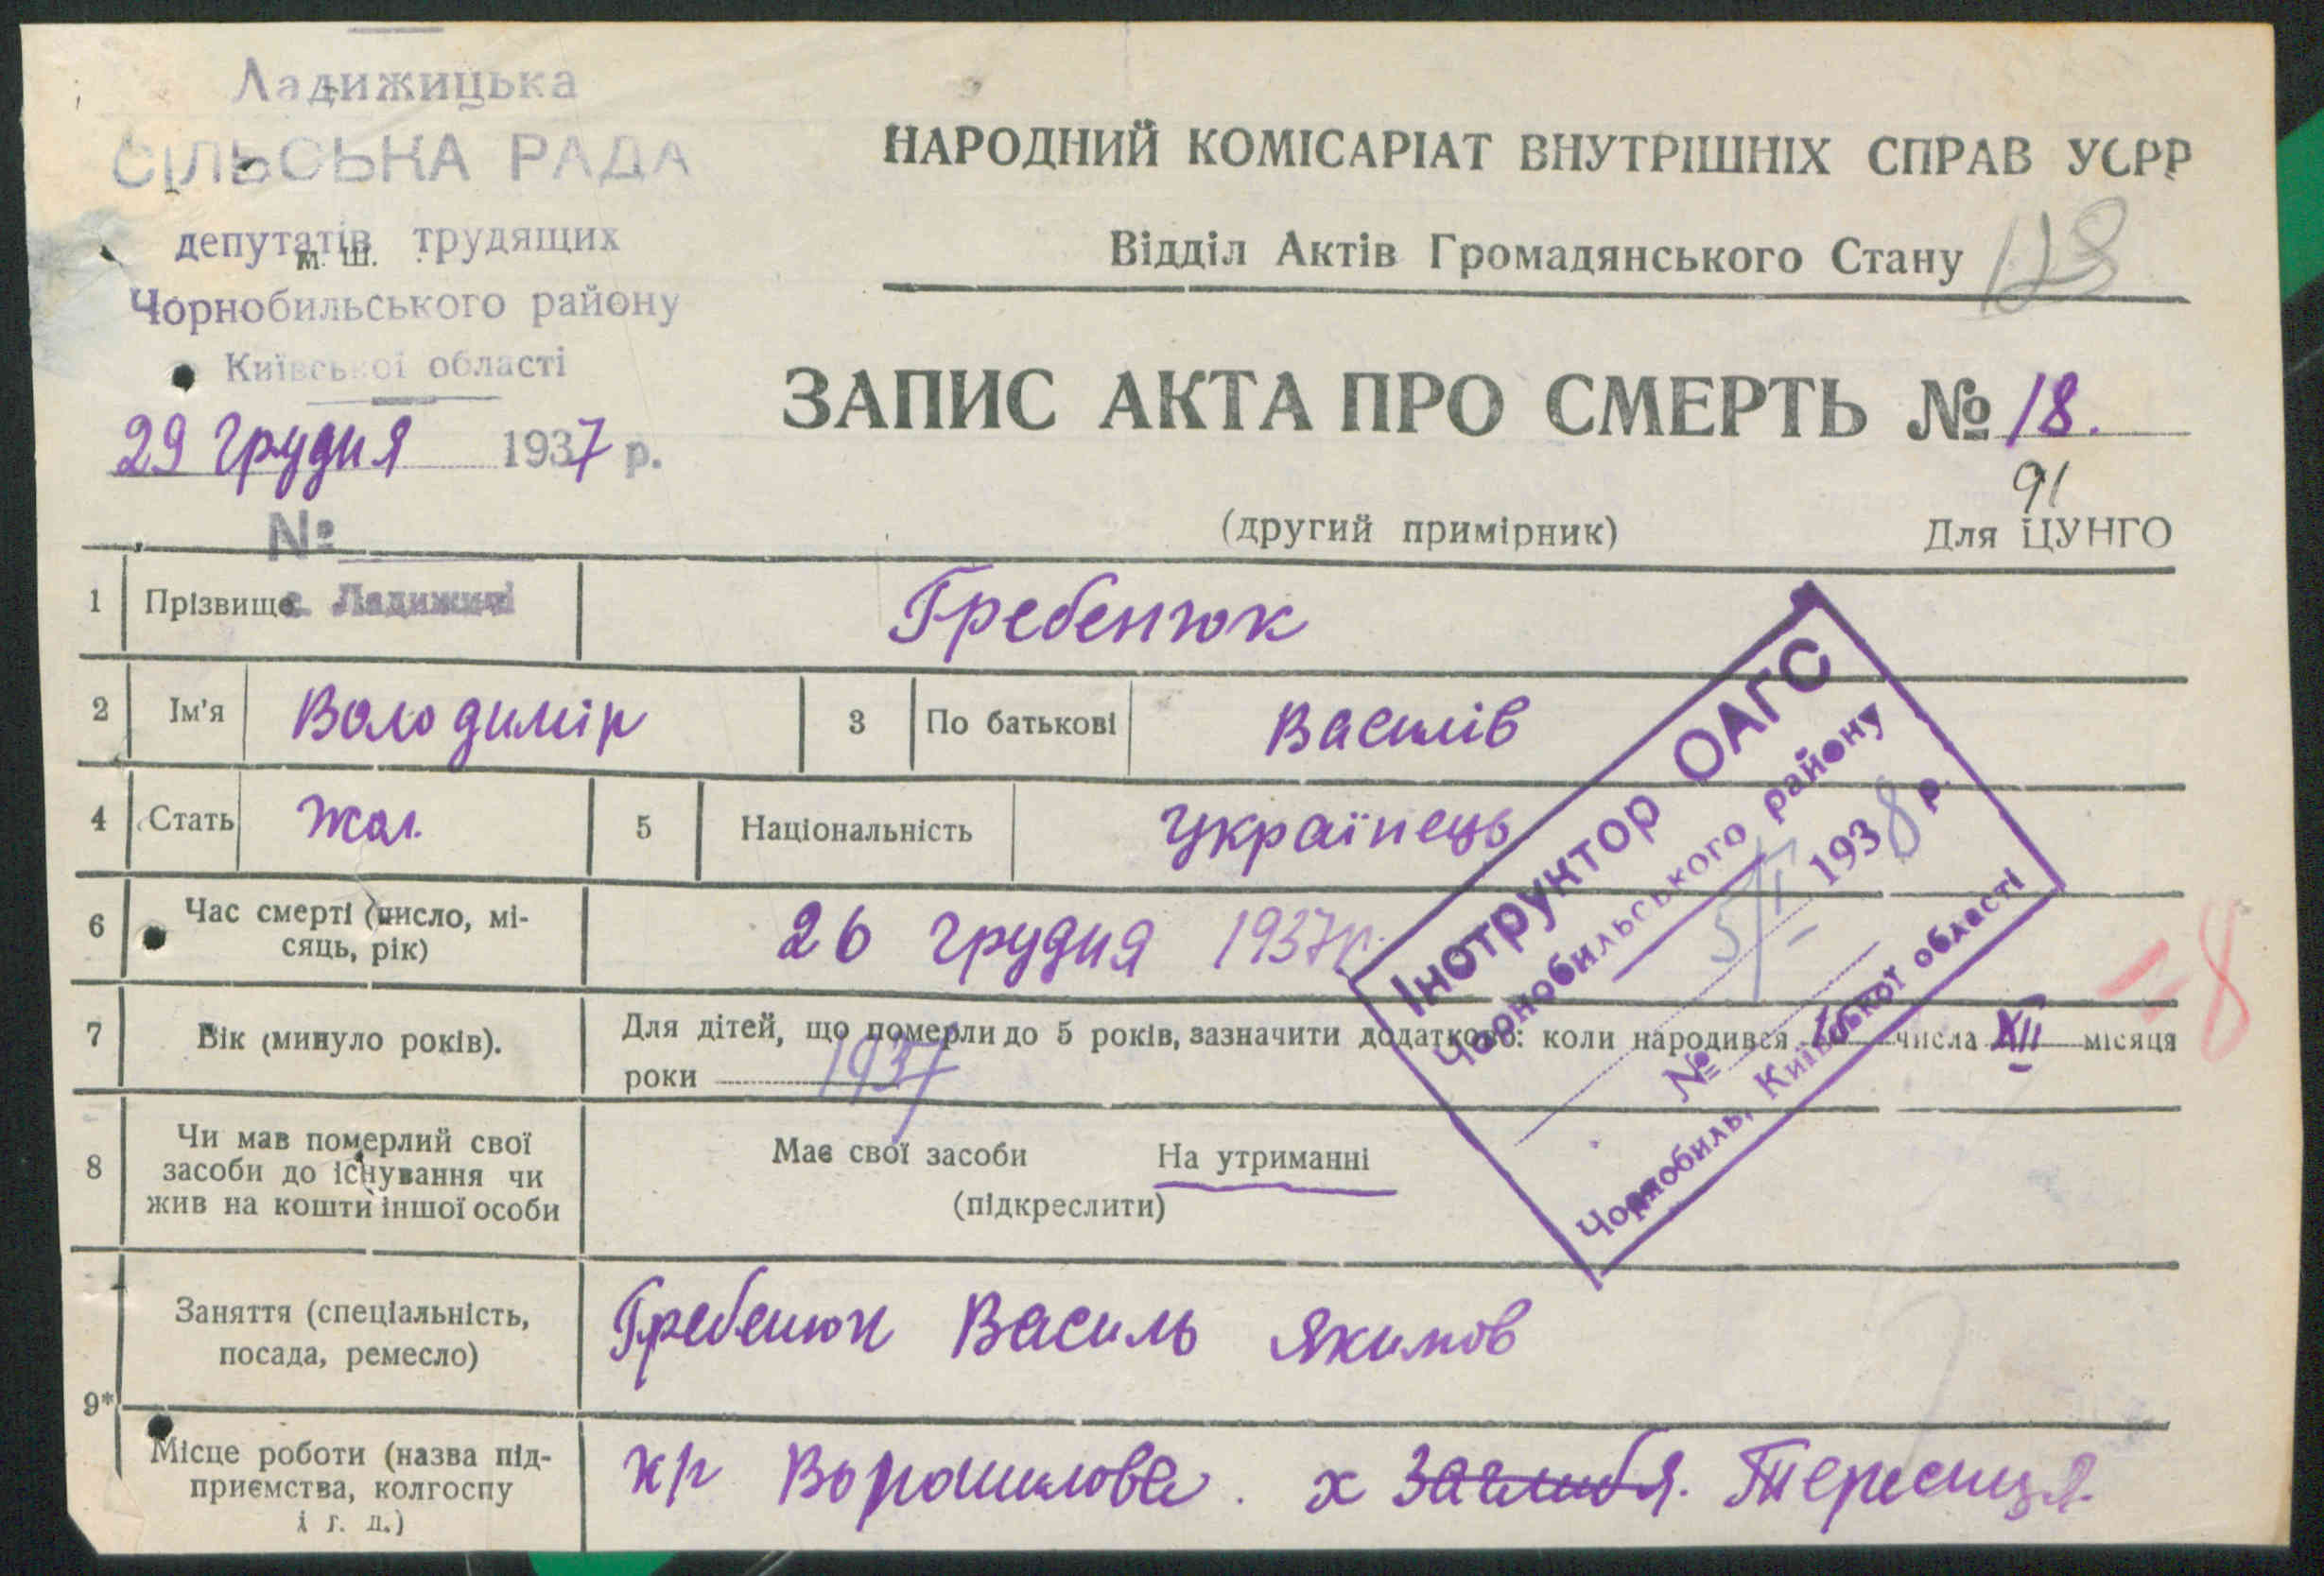 Ладижицька
СІЛЬСЬКА РАДА
депутатів трудящих
м. Ш.
Чорнобильського району
Київської області
29 грудня 1937 р.
№
с. Ладижичі
НАРОДНИЙ КОМІСАРІАТ ВНУТРІШНІХ СПРАВ УСРР
Відділ Актів Громадянського Стану
123
ЗАПИС АКТА ПРО СМЕРТЬ № 18.
91
(другий примірник) Для ЦУНГО
1 Прізвище Гребенюк
2 Ім'я Володимір 3 По батькові Василів
4 Стать жол. 5 Національність українець
6 Час смерті (число, мі-
сяць, рік) 26 грудня 1937р.
7 Вік (минуло років). Для дітей, що померли до 5 років, зазначити додатково: коли народився числа XII місяця
роки 1937
8 Чи мав померлий свої
засоби до існування чи
жив на кошти іншої особи
Має свої засоби На утриманні
(підкреслити)
Інструктор ОАГС
Чорнобильського району
5/I 1938 р.
№
Чорнобиль, Київської області
18
9* Заняття (спеціальність,
посада, ремесло) Гребенюк Василь Якимов
Місце роботи (назва під-
приємства, колгоспу
і г. д.)
кр Ворошилова. х Тересиця.